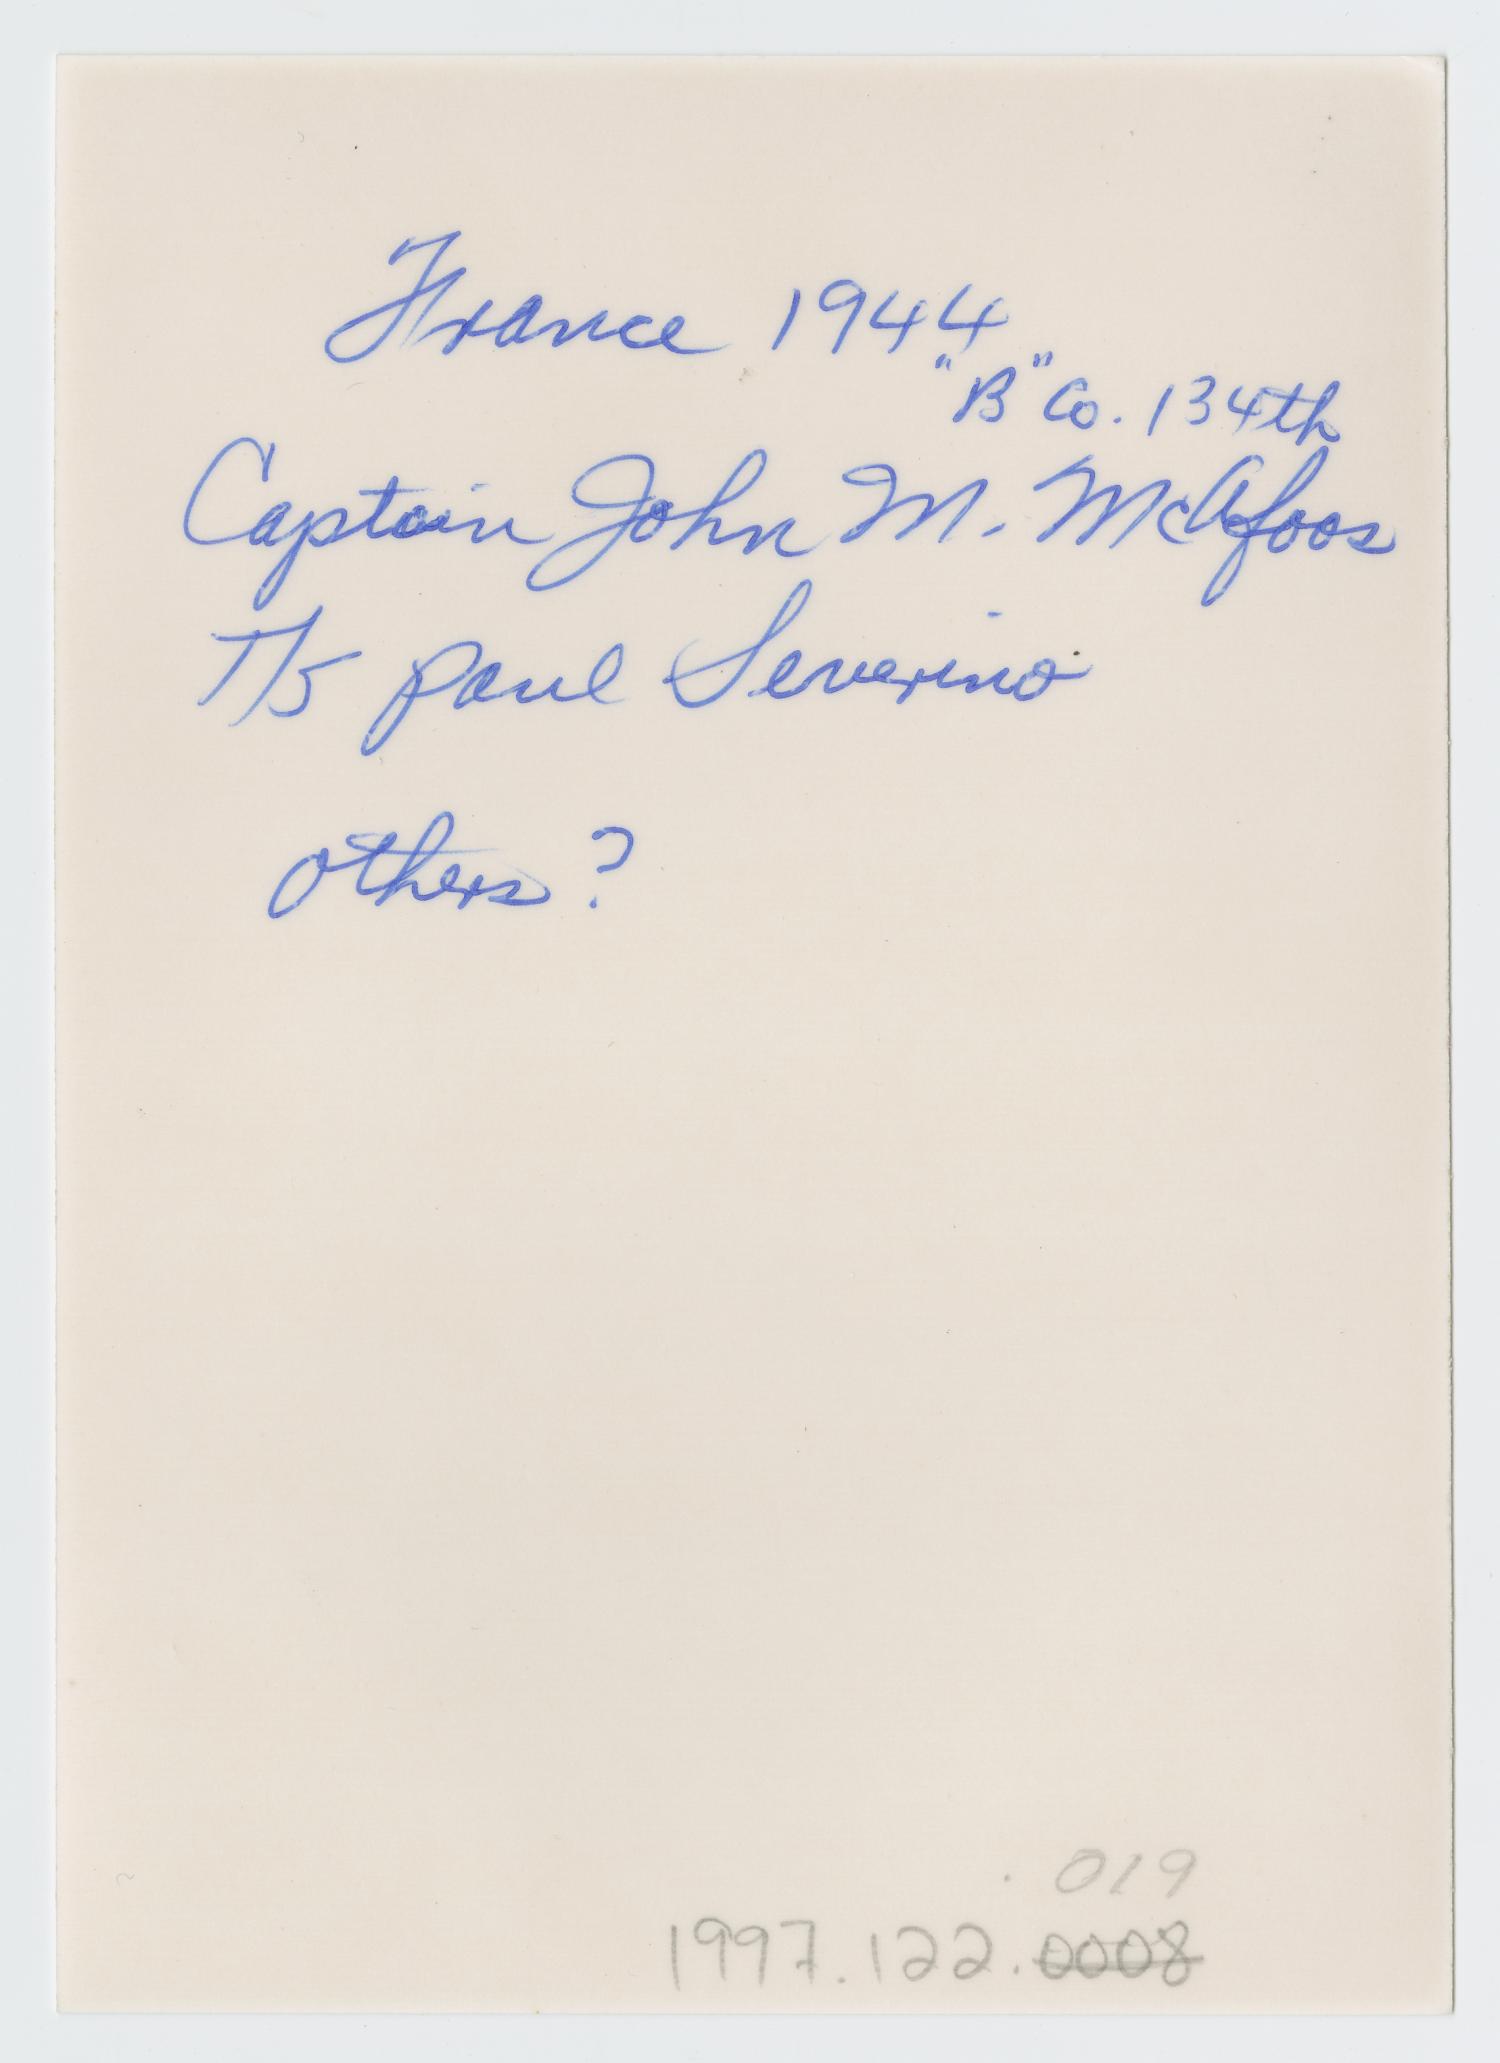 France 1944
"B" Co. 134th
Captain John M. McAfoos
T/5 Paul Severino
others?
.019
1997.122.0008